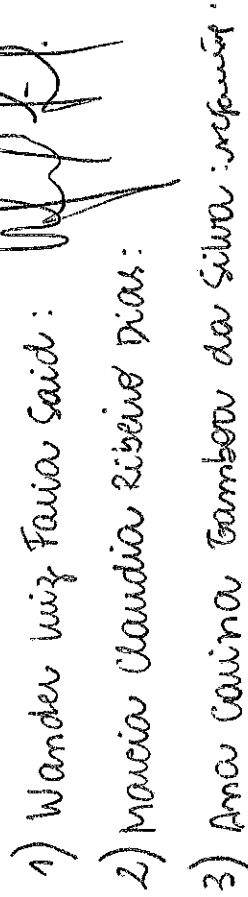 1) Wander Luiz Faria Said:
2) Marcia Claudia Ribeiro Dias:
3) Ana Carina Gamboa da Silva: